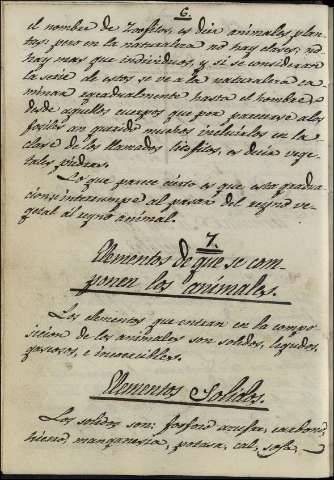 6.
el nombre de Zoofitos, es decir animales plan-
tas; pero en la naturaleza no hay clases; no
hay mas que individuos, y si se considerare
la serie de estos se ve a la naturaleza ca-
minar egradualmente hasta el hombre
desde aquellos cuerpos que por parecerse alos
fosiles an querido muchos incluirlos en la
clase de los llamados litofitos, es decir vege-
tales piedras.
Lo que parece cierto es que esta gradua-
cion se interrumpe al pasar del reyno ve-
getal al reyno animal.
7.
Elementos de que se com-
ponen los animales.
Los elementos que entran en la compo-
sicion de los animales son solidos, liquidos,
gaseosos, e incoercibles.
Elementos Solidos.
Los solidos son: fosforo azufre, carbono,
hierro, manganesia, potasa, cal, sosa,